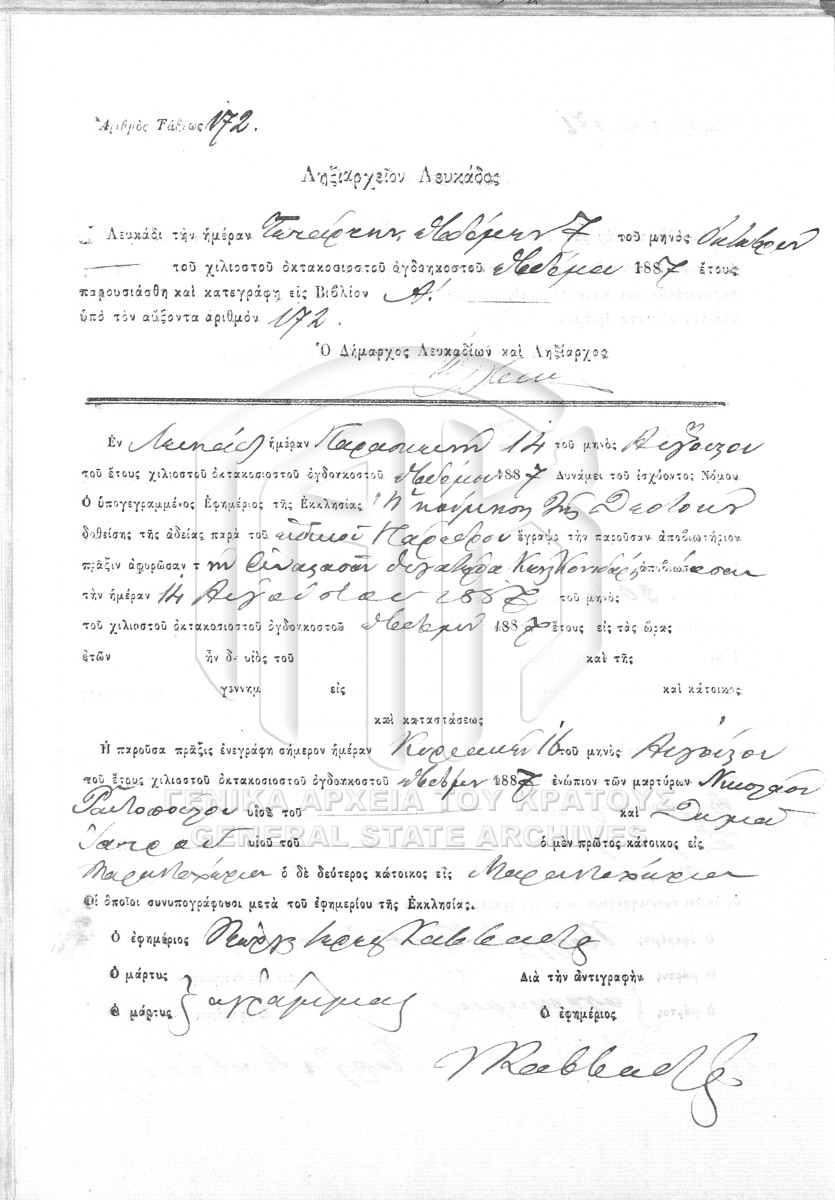 Ἀριθμὸς Τάξεως 172.
Ληξιαρχεῖον Λευκάδος
Λευκάδι τὴν ἡμέραν Τετάρτην, ἑβδόμην 7 τοῦ μηνὸς Ὀκτωβρίου
τοῦ χιλιοστοῦ ὀκτακοσιοστοῦ ὀγδοηκοστοῦ ἑβδόμου 1887 ἔτους
παρουσιάσθη καὶ κατεγράφη εἰς Βιβλίον Α!
ὑπὸ τὸν αὔξοντα ἀριθμὸν 172.
Ὁ Δήμαρχος Λευκαδίων καὶ Ληξίαρχος
Ἐν Λευκάδι ἡμέραν Παρασκευὴν 14 τοῦ μηνὸς Αὐγούστου
τοῦ ἔτους χιλιοστοῦ ὀκτακοσιοστοῦ ὀγδοηκοστοῦ ἑβδόμου 1887 Δυνάμει τοῦ ἰσχύοντος Νόμου
Ὁ ὑπογεγραμμένος Ἐφημέριος τῆς Ἐκκλησίας Ἡ κοίμησις τῆς
δοθείσης τῆς ἀδείας παρὰ τοῦ εἰδικοῦ Παρέδρου ἔγραψε τὴν παροῦσαν ἀποβιωτήριον
πρᾶξιν ἀφορῶσαν τὴν θυγατέρα ἀποβιώσασαν
τὴν ἡμέραν 14 Αὐγούστου 1887 τοῦ μηνὸς
τοῦ χιλιοστοῦ ὀκτακοσιοστοῦ ὀγδοηκοστοῦ ἑβδόμου 1887 ἔτους εἰς τὰς ὥρας
ἐτῶν ἦν δὲ υἱὸς τοῦ καὶ τῆς
γεννημ εἰς καὶ κάτοικος
καὶ καταστάσεως
Ἡ παροῦσα πρᾶξις ἐνεγράφη σήμερον ἡμέραν Κυριακὴν 16 τοῦ μηνὸς Αὐγούστου
τοῦ ἔτους χιλιοστοῦ ὀκτακοσιοστοῦ ὀγδοηκοστοῦ ἑβδόμου 1887 ἐνώπιον τῶν μαρτύρων Νικολάου
υἱοῦ τοῦ καὶ
υἱοῦ τοῦ ὁ μὲν πρῶτος κάτοικος εἰς
Μαραντοχώριον ὁ δὲ δεύτερος κάτοικος εἰς Μαραντοχώριον
Οἱ ὁποῖοι συνυπογράφουσι μετὰ τοῦ ἐφημερίου τῆς Ἐκκλησίας.
Ὁ ἐφημέριος Γεώργ. ἱερεὺς Καββαδᾶς
Ὁ μάρτυς Διὰ τὴν ἀντιγραφὴν
Ὁ μάρτυς } ἀγράμματοι Ὁ ἐφημέριος
Γ Καββαδᾶς
ΓΕΝΙΚΑ ΑΡΧΕΙΑ ΤΟΥ ΚΡΑΤΟΥΣ
GENERAL STATE ARCHIVES